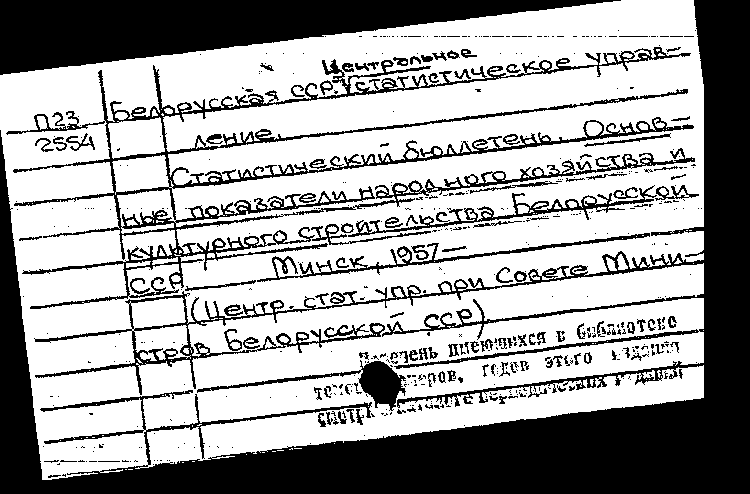 Центральное
П23 Белорусская ССР. Статистическое управ-
2554 ление.
Статистический бюллетень. Основ-
ные показатели народного хозяйства и
культурного строительства Белорусской
ССР. Минск, 1957—
(Центр. стат. упр. при Совете Мини-
стров Белорусской ССР)
Перечень имеющихся в библиотеке
номеров, годов этого издания
смотри в каталоге периодических изданий